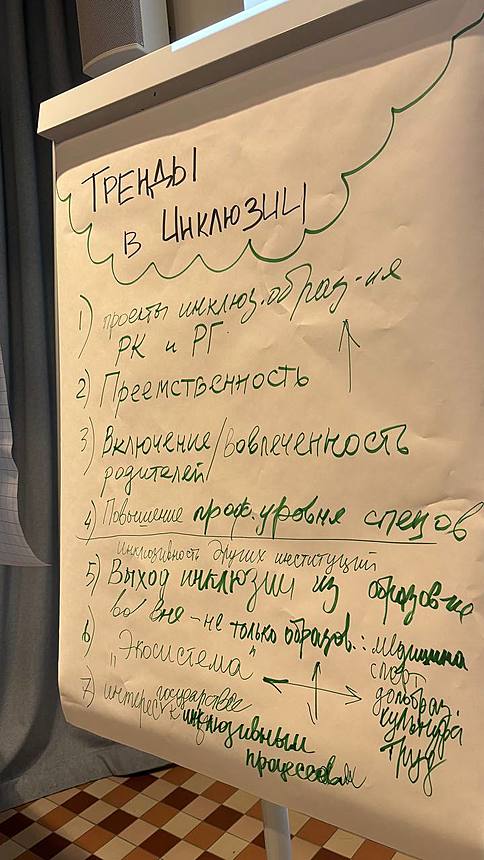 Тренды
в Инклюзии
1) проекты инклюз. образ-ия
РК и РГ
2) Преемственность
3) Включение/вовлеченность
родителей
4) Повышение проф. уровня спецов
Инклюзивность других институций
5) Выход инклюзии из образов-ия
во вне - не только образов.: медицина
спорт
допобраз.
культура
труд
6) "Экосистема"
7) интерес государства
к инклюзивным
процессам